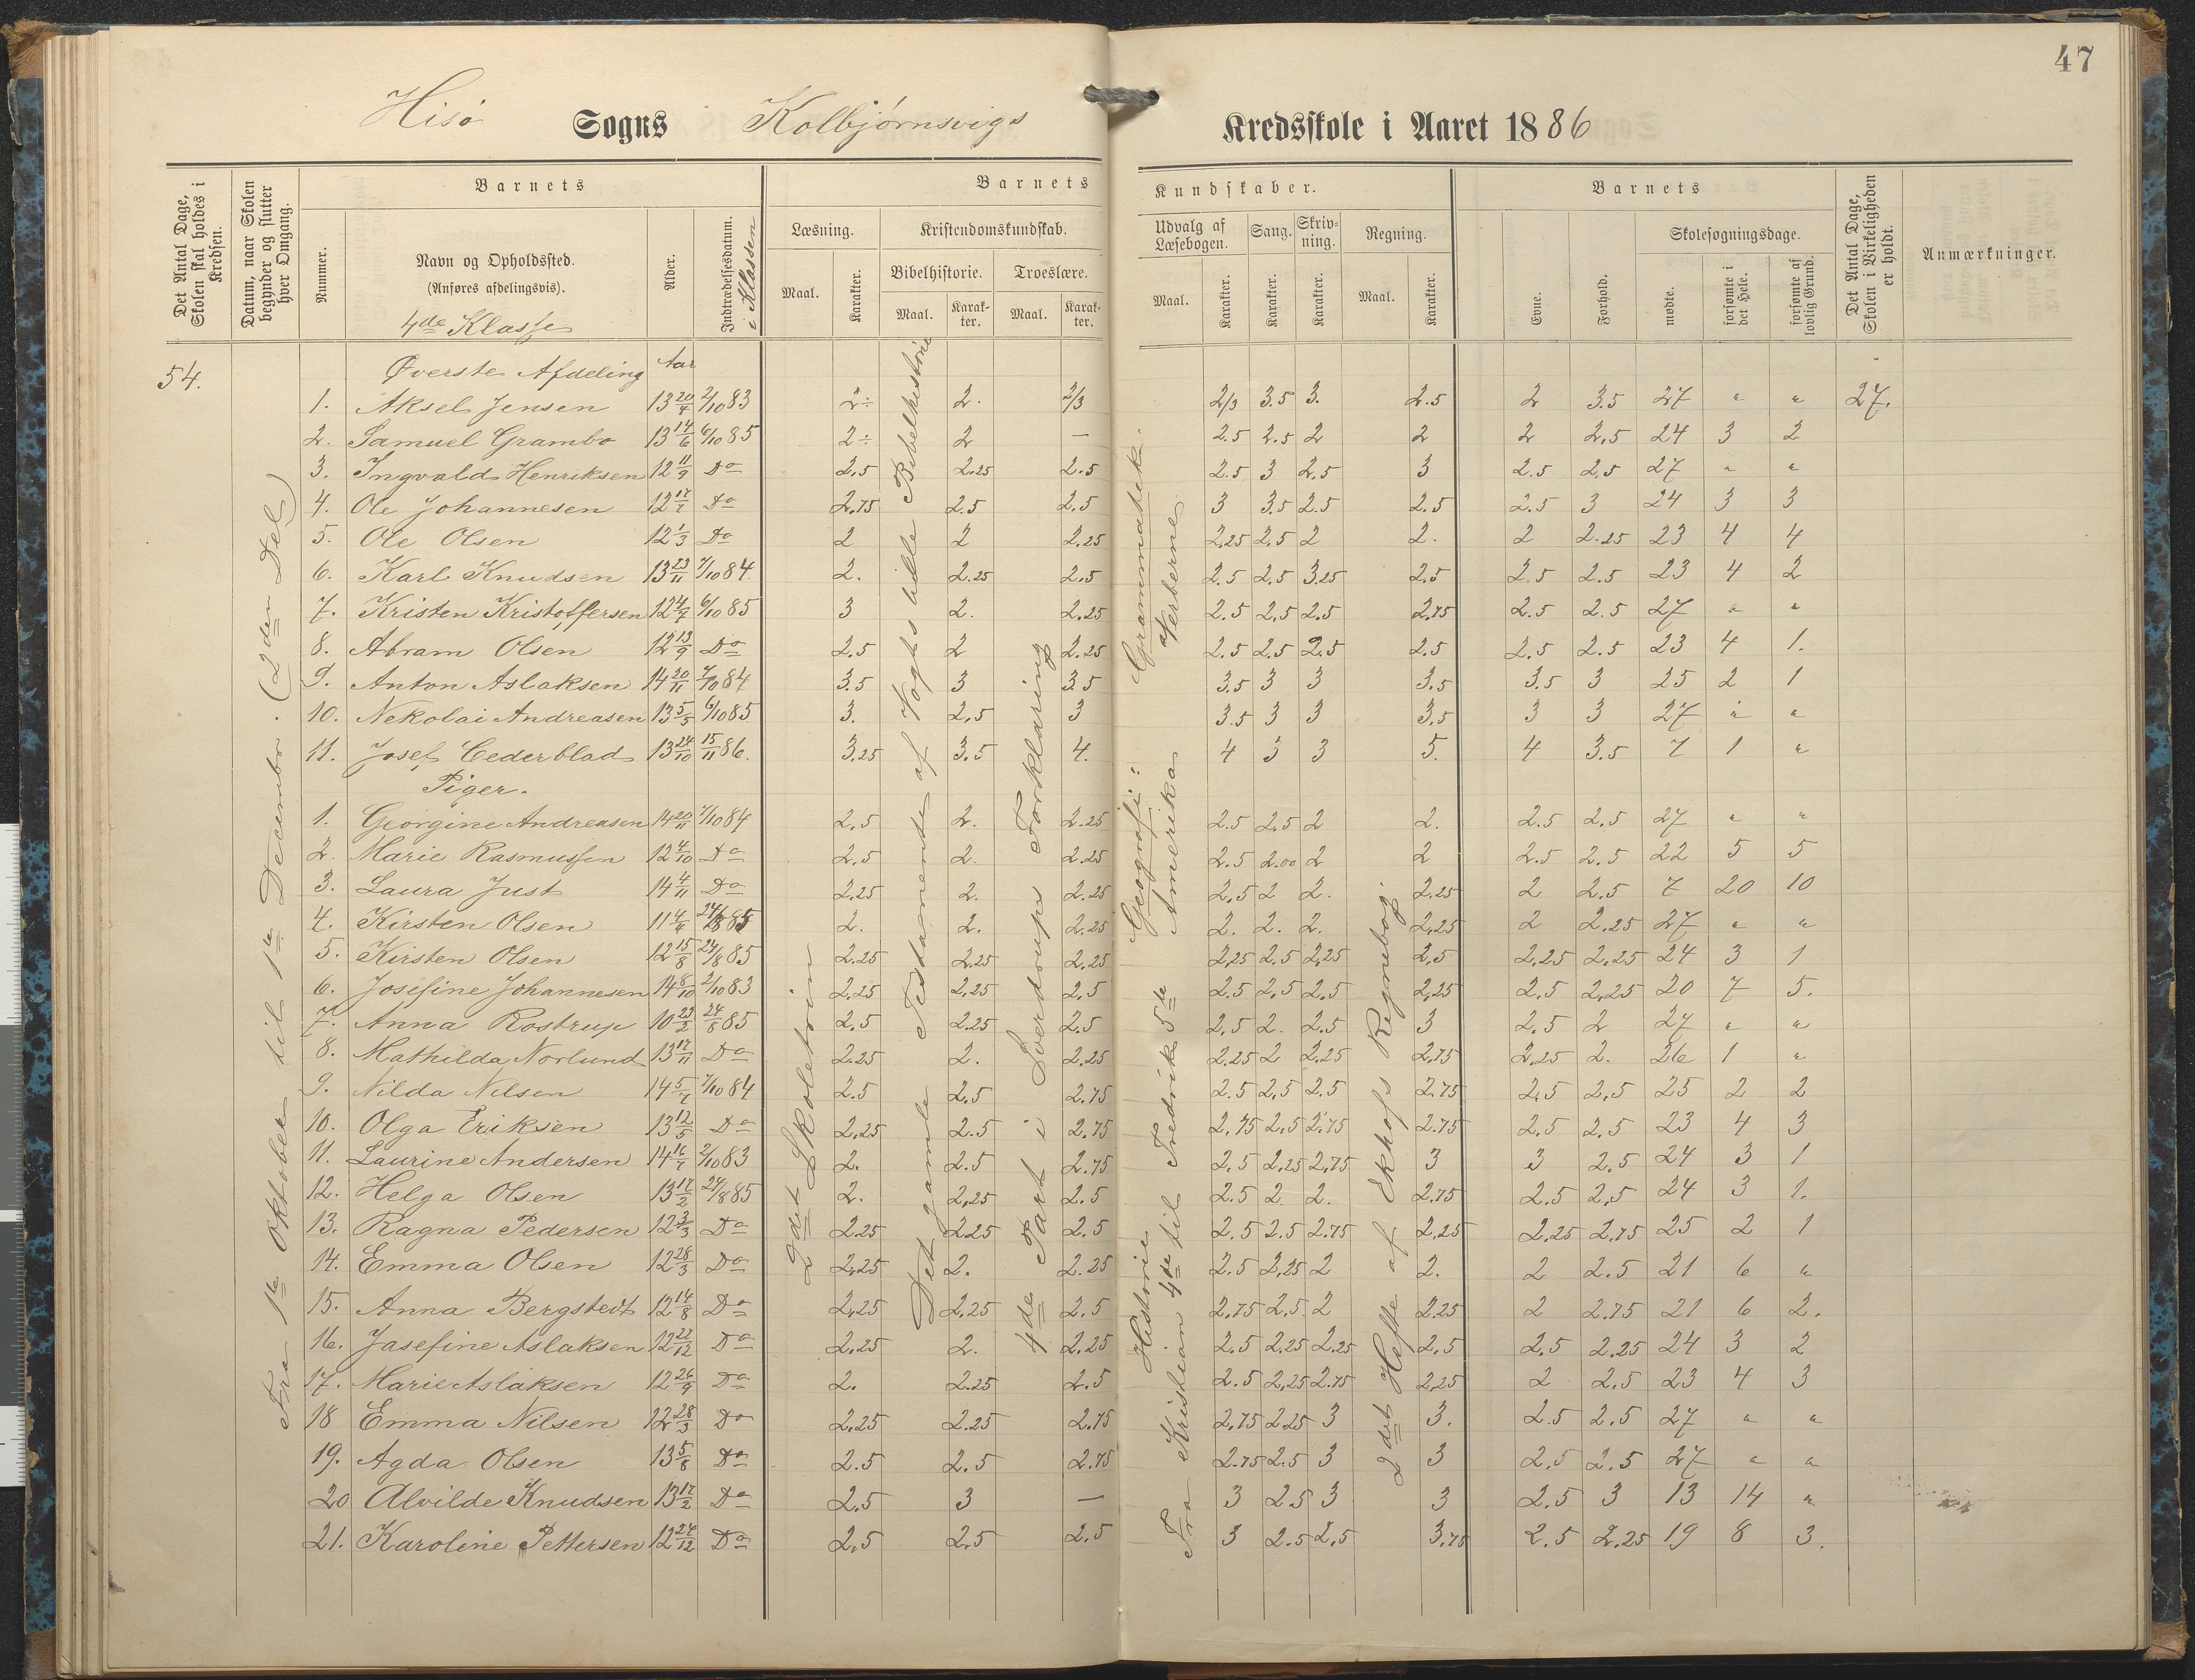 47
Hisø Sogns Kolbjørnsvigs Kredsskole i Aaret 1886
Det Antal Dage, Skolen skal holdes i Kredsen.
Datum, naar Skolen begynder og slutter hver Omgang.
Barnets
Nummer.
Navn og Opholdssted.
(Anføres afdelingsvis).
4de Klasse
Alder.
Indtrædelsesdatum.
i Klassen
Barnets Kundskaber.
Læsning.
Maal.
Karakter.
Kristendomskundskab.
Bibelhistorie.
Maal.
Karakter.
Troeslære.
Maal.
Karakter.
Udvalg af Læsebogen.
Maal.
Karakter.
Sang.
Karakter.
Skrivning.
Karakter.
Regning.
Maal.
Karakter.
Barnets
Evne.
Forhold.
Skolesøgningsdage.
mødte.
forsømte i det Hele.
forsømte af lovlig Grund.
Det Antal Dage, Skolen i Virkeligheden er holdt.
Anmærkninger.
54.
Øverste Afdeling Aar
Fra 1ste Oktober til 1ste December. (2den Del)
2det Skoletrin
Det gamle Testamente af Vogts lille Bibelhistorie
4de Part i Sverdrups Forklaring
Grammatik.
Verberne
Geografi:
Amerika
Historie
Fra Kristian 4de til Fredrik 5de
2det Hefte af Ekhofs Regnebog.
1. Aksel Jensen 13 20/4 2/10 83 2÷ 2. 2/3 2/3 3.5 3. 2.5 2 3.5 27 " " 27.
2. Samuel Grambo 13 14/6 6/10 85 2÷ 2 — 2.5 2.5 2 2 2 2.5 24 3 2
3. Ingvald Henriksen 12 11/9 Do 2.5 2.25 2.5 2.5 3 2.5 3 2.5 2.5 27 " "
4. Ole Johannesen 12 17/7 Do 2.75 2.5 2.5 3 3.5 2.5 2.5 2.5 3 24 3 3
5. Ole Olsen 12 1/3 Do 2 2 2.25 2.25 2.5 2 2. 2 2.25 23 4 4
6. Karl Knudsen 13 23/11 7/10 84. 2. 2.25 2.5 2.5 2.5 3.25 2.5 2.5 2.5 23 4 2
7. Kristen Kristoffersen 12 4/7 6/10 85 3 2. 2.25 2.5 2.5 2.5 2.75 2.5 2.5 27 " "
8. Abram Olsen 12 13/9 Do 2.5 2 2.25 2.5 2.5 2.5 2.5 2.5 2.5 23 4 1.
9. Anton Aslaksen 14 20/11 7/10 84 3.5 3 3.5 3.5 3 3 3.5 3.5 3 25 2 1
10. Nekolai Andreasen 13 5/5 6/10 85 3. 2.5 3 3.5 3 3 3.5 3 3 27 " "
11. Josef Cederblad 13 24/10 15/11 86. 3.25 3.5 4. 4 3 3 5. 4 3.5 7 1 "
Piger.
1. Georgine Andreasen 14 20/11 7/10 84 2.5 2. 2.25 2.5 2.5 2 2. 2.5 2.5 27 " "
2. Marie Rasmussen 12 4/10 Do 2.5 2. 2.25 2.5 2.00 2 2 2.5 2.5 22 5 5
3. Laura Just 14 4/11 Do 2.25 2. 2.25 2.5 2 2. 2.25 2 2.5 7 20 10
4. Kirsten Olsen 11 4/4 24/8 85 2. 2. 2.25 2. 2. 2. 2.25 2 2.25 27 " "
5. Kirsten Olsen 12 15/8 24/8 85 2.25 2.25 2.25 2.25 2.5 2.25 2.5 2.25 2.25 24 3 1
6. Josefine Johannesen 14 8/10 2/10 83 2.25 2.25 2.5 2.5 2.5 2.5 2.25 2.5 2.25 20 7 5.
7. Anna Rostrup 10 23/2 24/8 85 2.5 2.25 2.5 2.5 2. 2.5 3 2.5 2 27 " "
8. Mathilda Norlund 13 17/11 Do 2.25 2. 2.25 2.25 2 2.25 2.75 2.25 2. 26 1 "
9. Nilda Nilsen 14 5/7 7/10 84 2.5 2.5 2.75 2.5 2.5 2.5 2.75 2.5 2.5 25 2 2
10. Olga Eriksen 13 12/5 Do 2.25 2.5 2.75 2.75 2.5 2.75 2.75 2.5 2.5 23 4 3
11. Laurine Andersen 14 16/7 2/10 83 2. 2.5 2.75 2.5 2.25 2.75 3 3 2.5 24 3 1
12. Helga Olsen 13 17/2 24/8 85 2. 2.25 2.5 2.5 2. 2. 2.75 2.5 2.5 24 3 1.
13. Ragna Pedersen 12 3/3 Do 2.25 2.25 2.5 2.5 2.5 2.75 2.25 2.25 2.75 25 2 1
14. Emma Olsen 12 28/3 Do 2.25 2. 2.25 2.5 2.25 2 2. 2 2.5 21 6 "
15. Anna Bergstedt 12 14/8 Do 2.25 2.25 2.5 2.75 2.5 2 2.25 2 2.75 21 6 2.
16. Jasefine Aslaksen 12 27/12 Do 2.25 2. 2.25 2.5 2.25 2.25 2.5 2.5 2.25 24 3 2
17. Marie Aslaksen 12 26/9 Do 2. 2.25 2.5 2.5 2.25 2.75 2.25 2 2.5 23 4 3
18 Emma Nilsen 12 28/3 Do 2.25 2.25 2.75 2.75 2.25 3 3. 2.5 2.5 27 " "
19. Agda Olsen 13 5/8 Do 2.5 2.5 2.75 2.75 2.5 3 3 2.5 2.5 27 " "
20 Alvilde Knudsen 13 17/2 Do 2.5 3 — 3 2.5 3 3 2.5 3 13 14 "
21. Karoline Pettersen 12 24/12 Do 2.5 2.5 2.5 3 2.5 2.5 3.75 2.5 2.25 19 8 3.